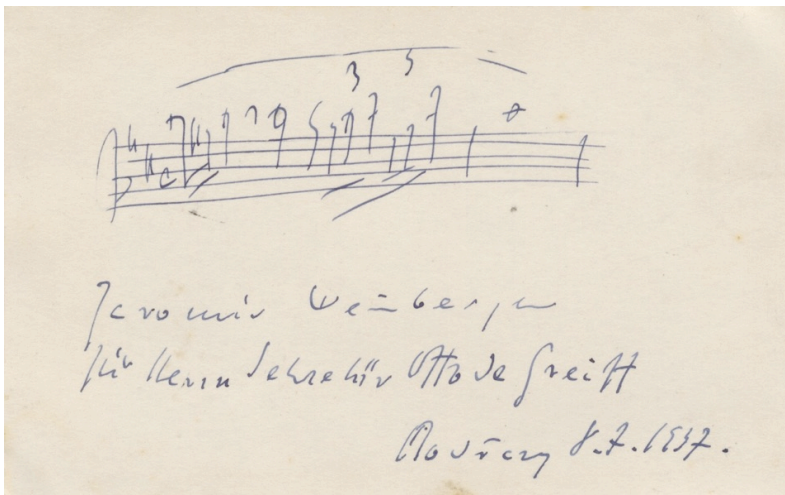 Jaromir Weinberger
für Herrn Sekretär Otto de Greiff
Modřany 8.7.1937.